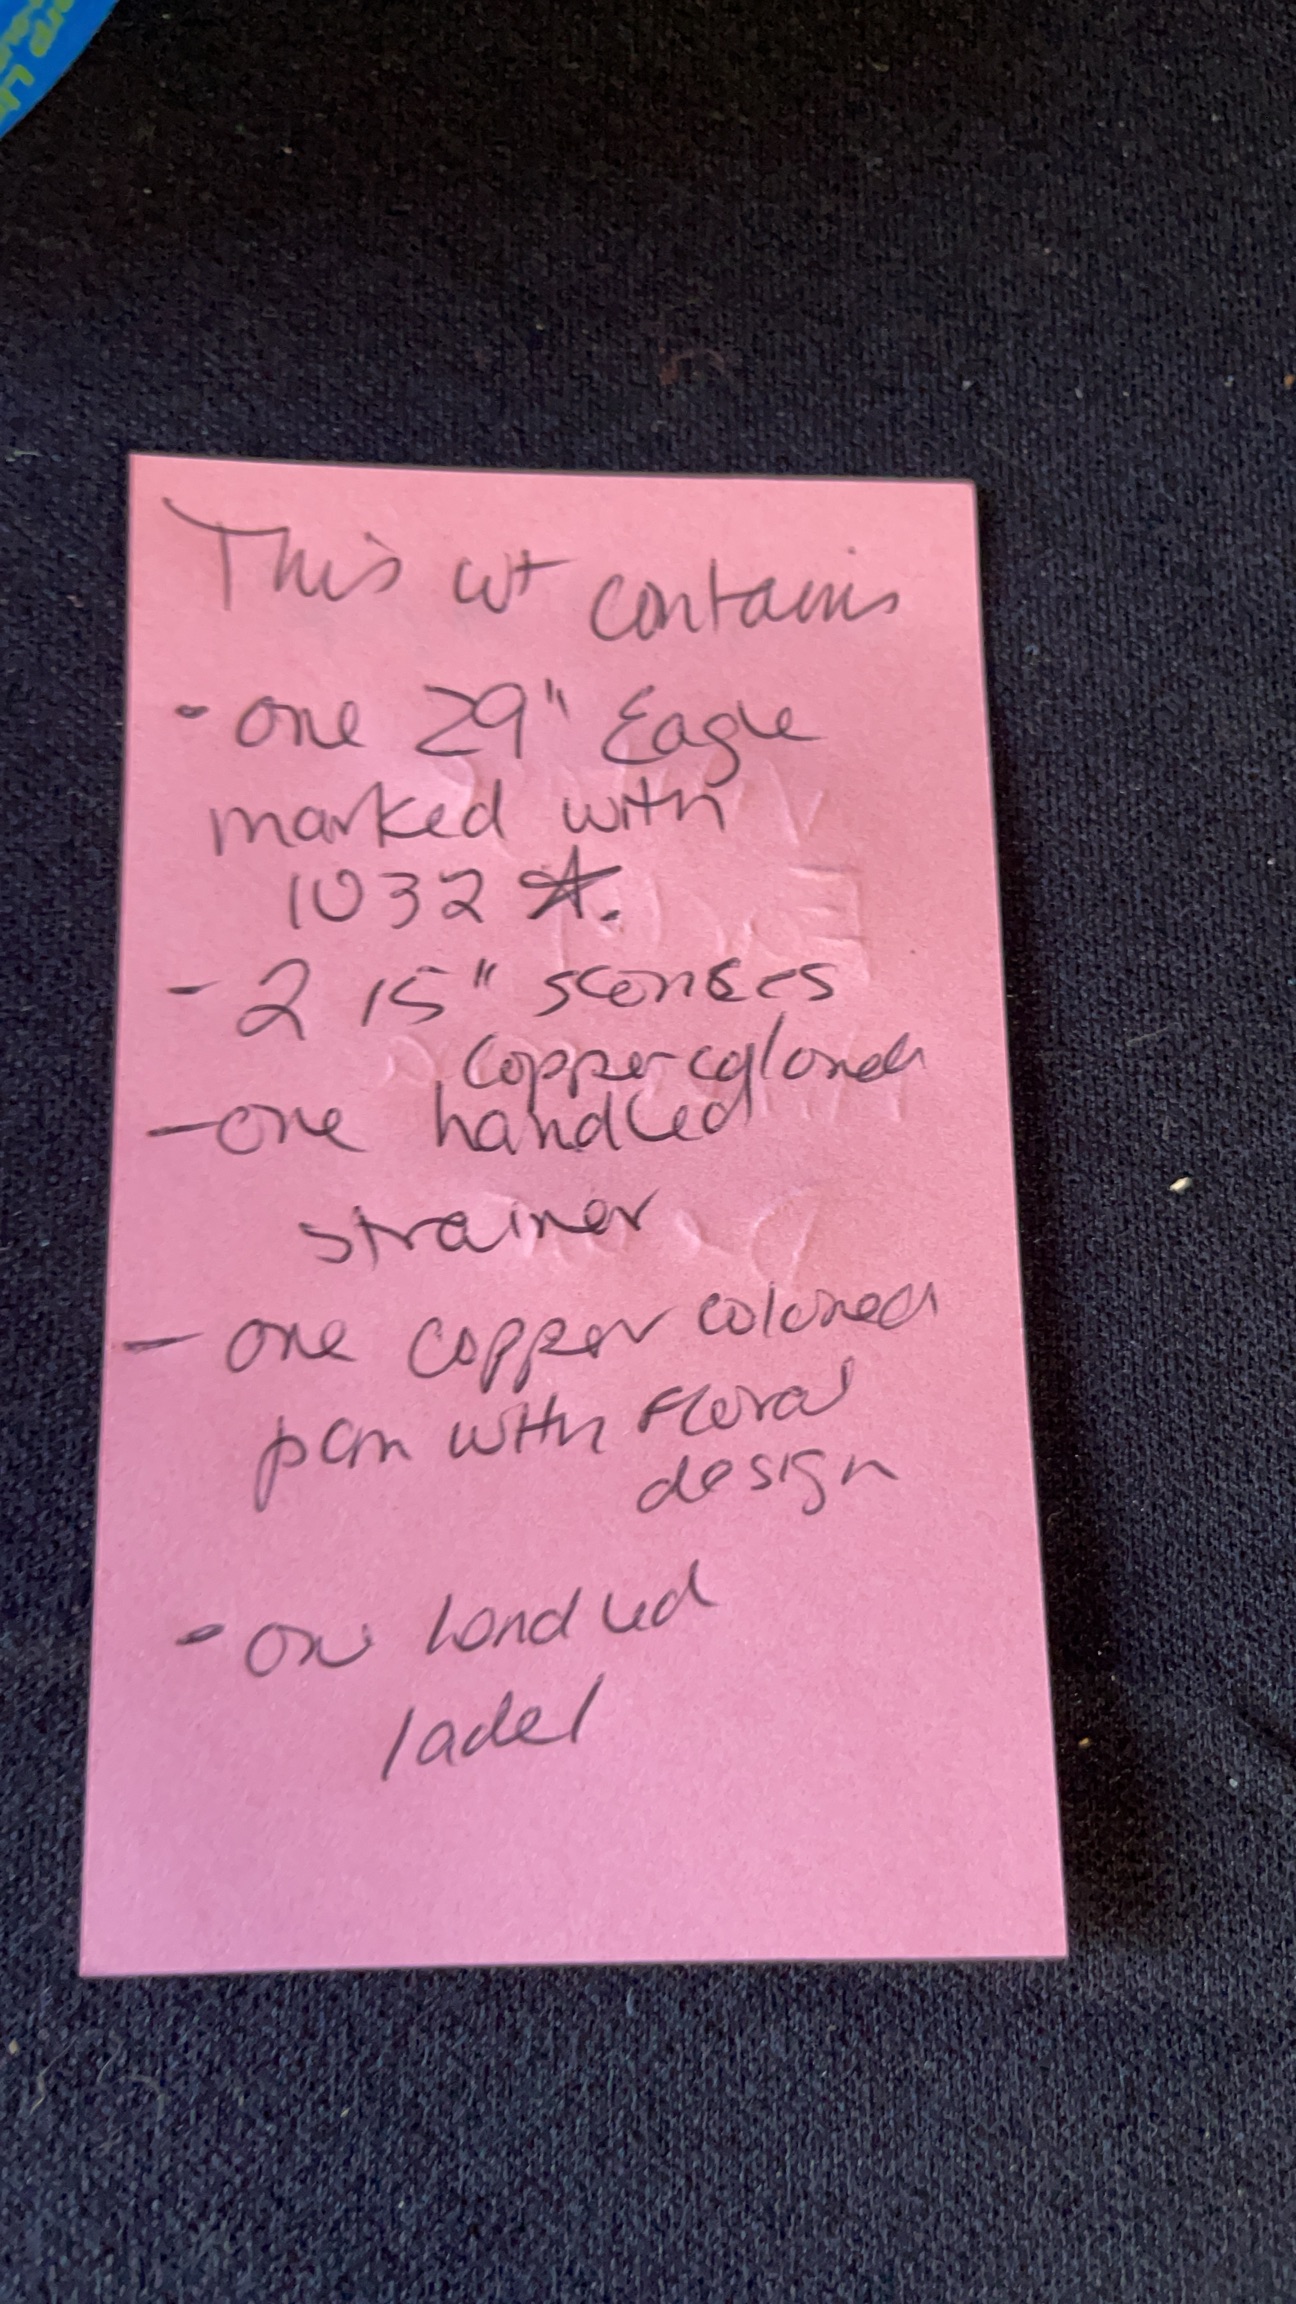 This lot contains
- one 29" Eagle
marked with
1032 ☆.
- 2 15" sconses
copper colored
- one handled
strainer
- one copper colored
pan with floral
design
- one handled
ladel